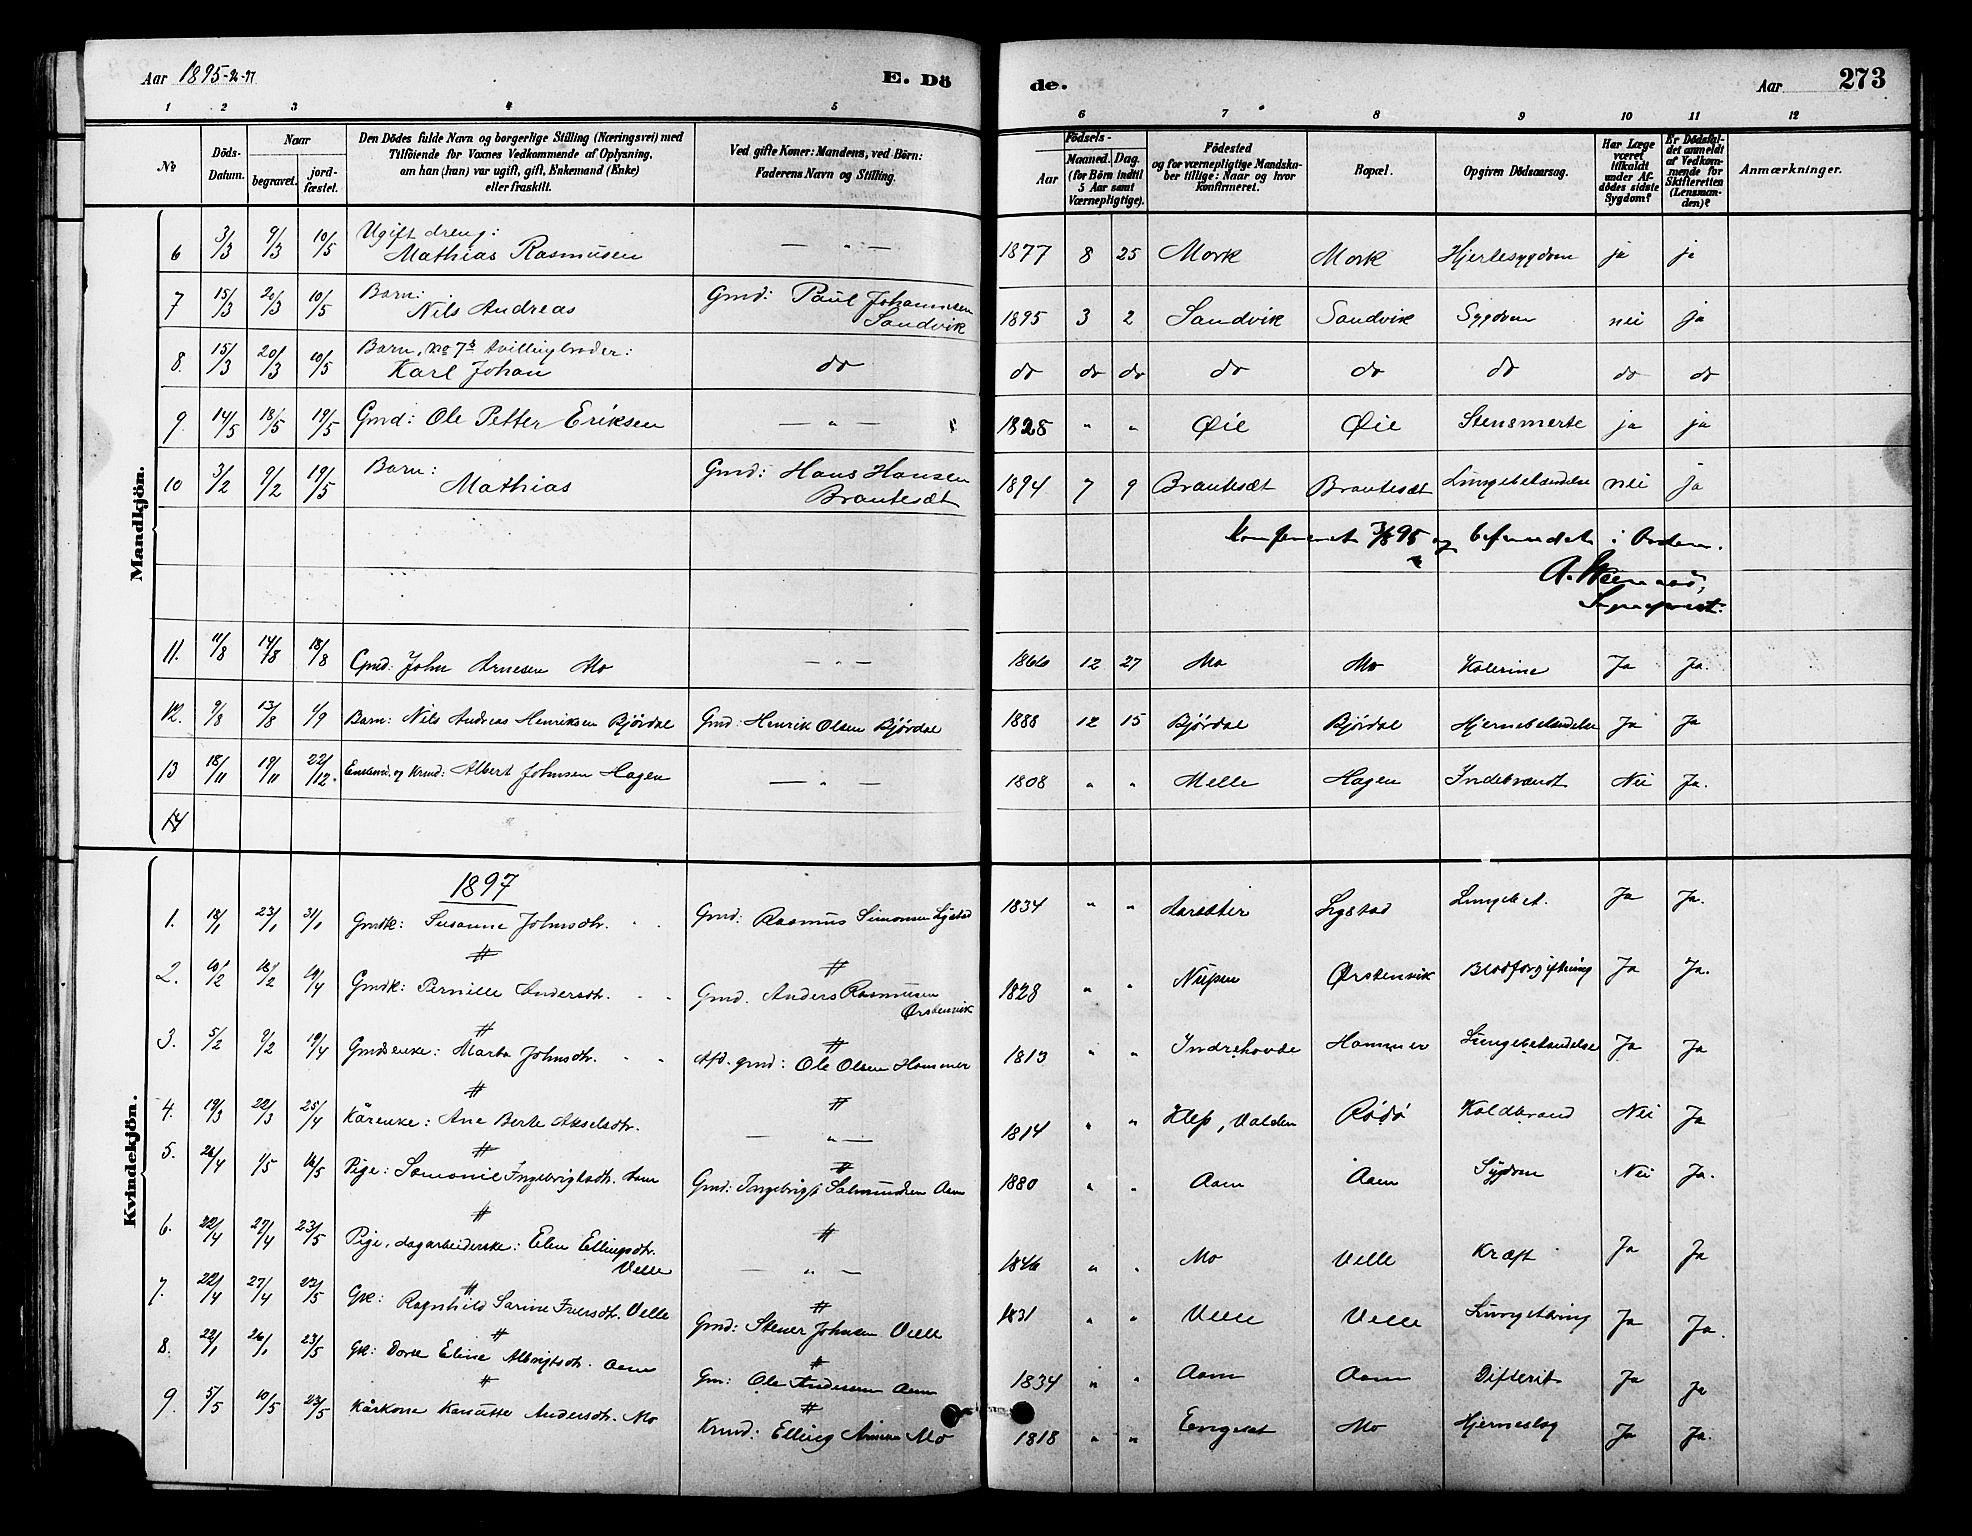 Aar 1895-96-97
E. Dö
de.
Aar
273
1 2 3 4 5 6 7 8 9 10 11 12
No
Döds-Datum.
Naar
begravet.
jord-fæstet.
Den Dödes fulde Navn og borgerlige Stilling (Næringsvei) med
Tilföiende for Voxnes Vedkommende af Oplysning,
om han (hun) var ugift, gift, Enkemand (Enke)
eller fraskilt.
Ved gifte Koner: Mandens, ved Börn:
Faderens Navn og Stilling.
Födsels-
Aar
Maaned. Dag.
(for Börn indtil
5 Aar samt
Værnepligtige).
Födested
og for værnepligtige Mandska-
ber tillige: Naar og hvor
konfirmeret.
Bopæl.
Opgiven Dödsaarsag.
Har Læge
været
tilkaldt
under Af-
dödes sidste
Sygdom?
Er Dödsfal-
det anmeldt
af Vedkom-
mende for
Skifteretten
(Lensman-
den)?
Anmærkninger.
Mandkjön.
6 3/3 9/3 10/5 Ugift dreng: Mathias Rasmusen — " — 1877 8 25 Mork Mork Hjertesygdom ja ja
7 15/3 20/3 10/5 Barn: Nils Andreas Gmd: Paul Johannesen Sandvik 1895 3 2 Sandvik Sandvik Sygdom nei ja
8. 15/3 20/3 10/5 Barn, no 7s tvillingbroder: Karl Johan do do do do do do do do do
9. 14/5 18/5 19/5 Gmd: Ole Petter Eriksen — " — 1828 " " Øie Øie Stensmerte ja ja
10 3/2 9/2 19/5 Barn: Mathias Gmd: Hans Hansen Brautesæt 1894 7 9 Brautesæt Brautesæt Lungebetændelse nei ja
Konfereret 7/8 95 og befundet i Orden.
11. 11/8 14/8 18/8 Gmd: John Arnesen Mo — " — 1866 12 27 Mo Mo Kolerine Ja Ja.
12. 9/8 13/8 1/9 Barn: Nils Andreas Henriksen Bjørdal Gmd: Henrik Olsen Bjørdal 1888 12 15 Bjørdal Bjørdal Hjernebetændelse Ja Ja
13 18/11 19/11 22/12. Enkemd. og Krmd: Albert Johnsen Hagen — " — 1808 " " Melle Hagen Indebrændt Nei Ja.
14
Kvindekjön.
1897
1. 18/1 23/1 31/1 Gmdk: Susanne Johnsdtr. Gmd: Rasmus Simonsen Lystad 1834 " " Aarsætter Lystad Lungebet. Ja Ja.
2. 10/2 18/2 19/4 Gmdk: Pernille Andersdtr. Gmd. Anders Rasmusen Ørstenvik 1828 " " Nupen Ørstenvik Blodforgiftning Ja Ja.
3. 5/2 9/2 19/4 Gmdsenke: Marta Johnsdtr. Afd. gmd: Ole Olsen Hammer 1813 " " Indrehovde Hammer Lungebetændelse Ja Ja
4. 19/3 22/3 25/4 Kårenke: Ane Berte Akselsdtr. — " — 1814 " " Klep, Valden Koldbrand Nei Ja
5. 26/4 1/5 16/5 Pige: Ingebrigtsdtr. Aam Gmd: Ingebrigt Salmundsen Aam 1880 " " Aam Aam Sygdom Nei Ja.
6. 22/4 27/4 23/5 Pige, dagarbeiderske: Elen Ellingsdtr. Velle — " — 1846 " " Mo Velle Kræft Ja Ja
7. 22/4 27/4 23/5 Gk: Ragnhild Sarine Iversdtr. Velle Gmd: Stener Johnsen Velle 1831 " " Velle Velle Lungetæring Ja Ja.
8. 22/1 26/1 23/5 Gk: Dorte Eline Albrigtsdtr. Aam Gm: Ole Andersen Aam 1834 " " Aam Aam Difterit Ja Ja
9. 5/5 10/5 23/5 Kårkone Andersdtr. Mo Krmd: Elling Mo 1818 " " Engeset Mo Hjerneslag Ja Ja.